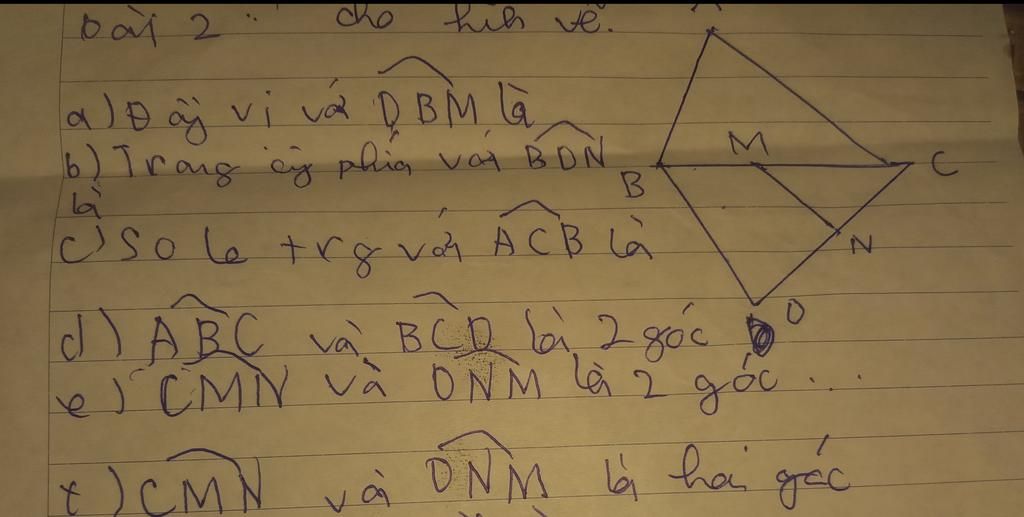 Bài 2 : cho hìh vẽ.
a) Đồg vị với DBM là
b) Trong cùg phía với BDN
là
c) So le trg với ACB là
d) ABC và BCD là 2 góc
e) CMN và DNM là 2 góc ...
f) CMN và DNM là hai góc
B
M
C
N
D